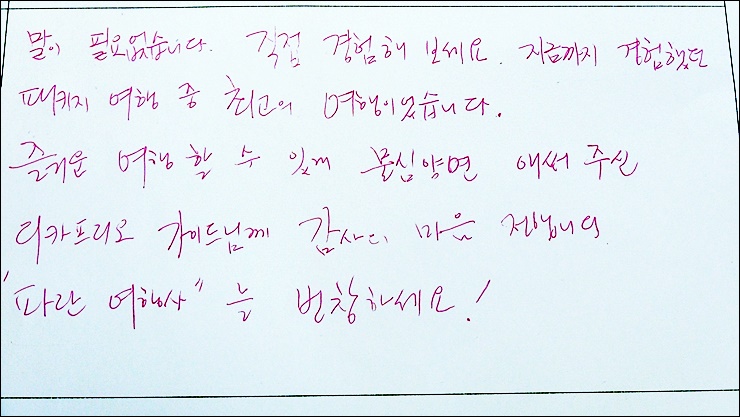 말이 필요없습니다. 직접 경험해 보세요. 지금까지 경험했던
패키지 여행 중 최고의 여행이었습니다.
즐거운 여행 할 수 있게 물심양면 애써 주신
디카프리오 가이드님께 감사의 마음 전합니다
"파란 여행사" 늘 번창하세요!